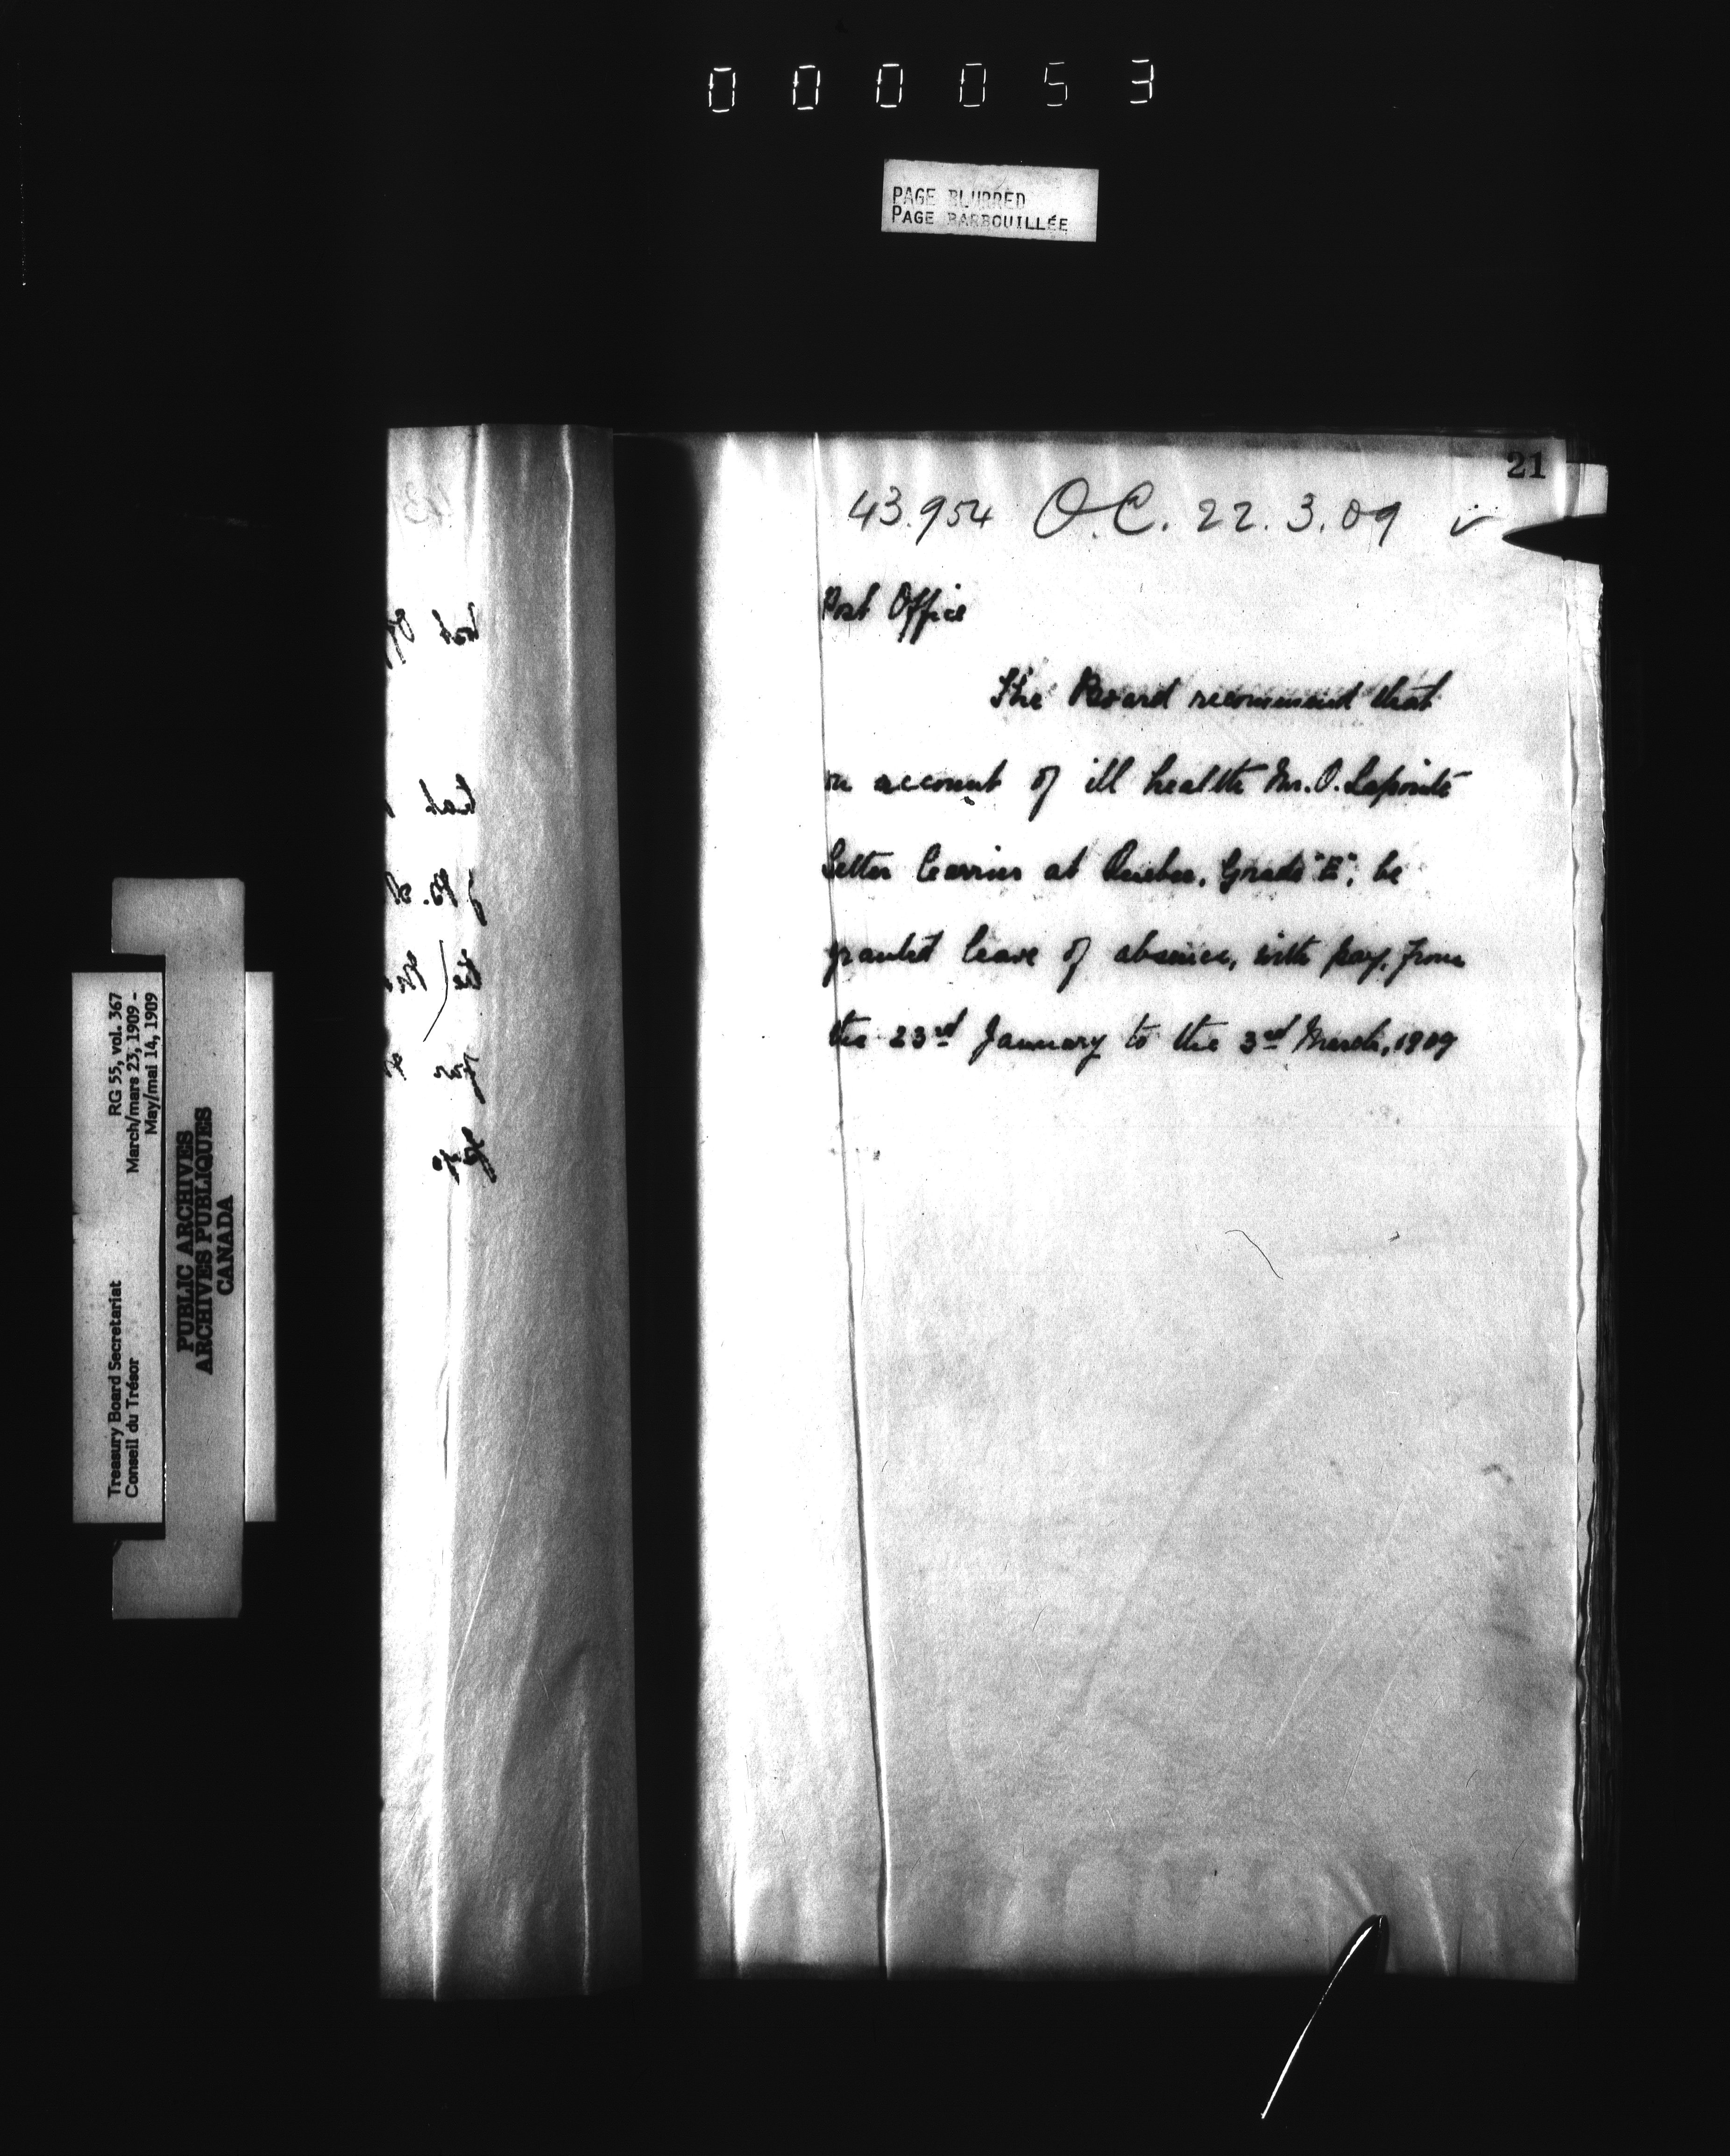 000053
PAGE BLURRED
PAGE BARBOUILLÉE
21
43.954 O.C. 22.3.09
Post Office
The Board recommend that
on account of ill health Mr. O. Lapointe
Letter Carrier at Quebec, Grade "E", be
granted leave of absence, with pay, from
the 23rd January to the 3rd March, 1909
Treasury Board Secretariat RG 55, vol. 367
Conseil du Trésor March/mars 23, 1909 -
May/mai 14, 1909
PUBLIC ARCHIVES
ARCHIVES PUBLIQUES
CANADA